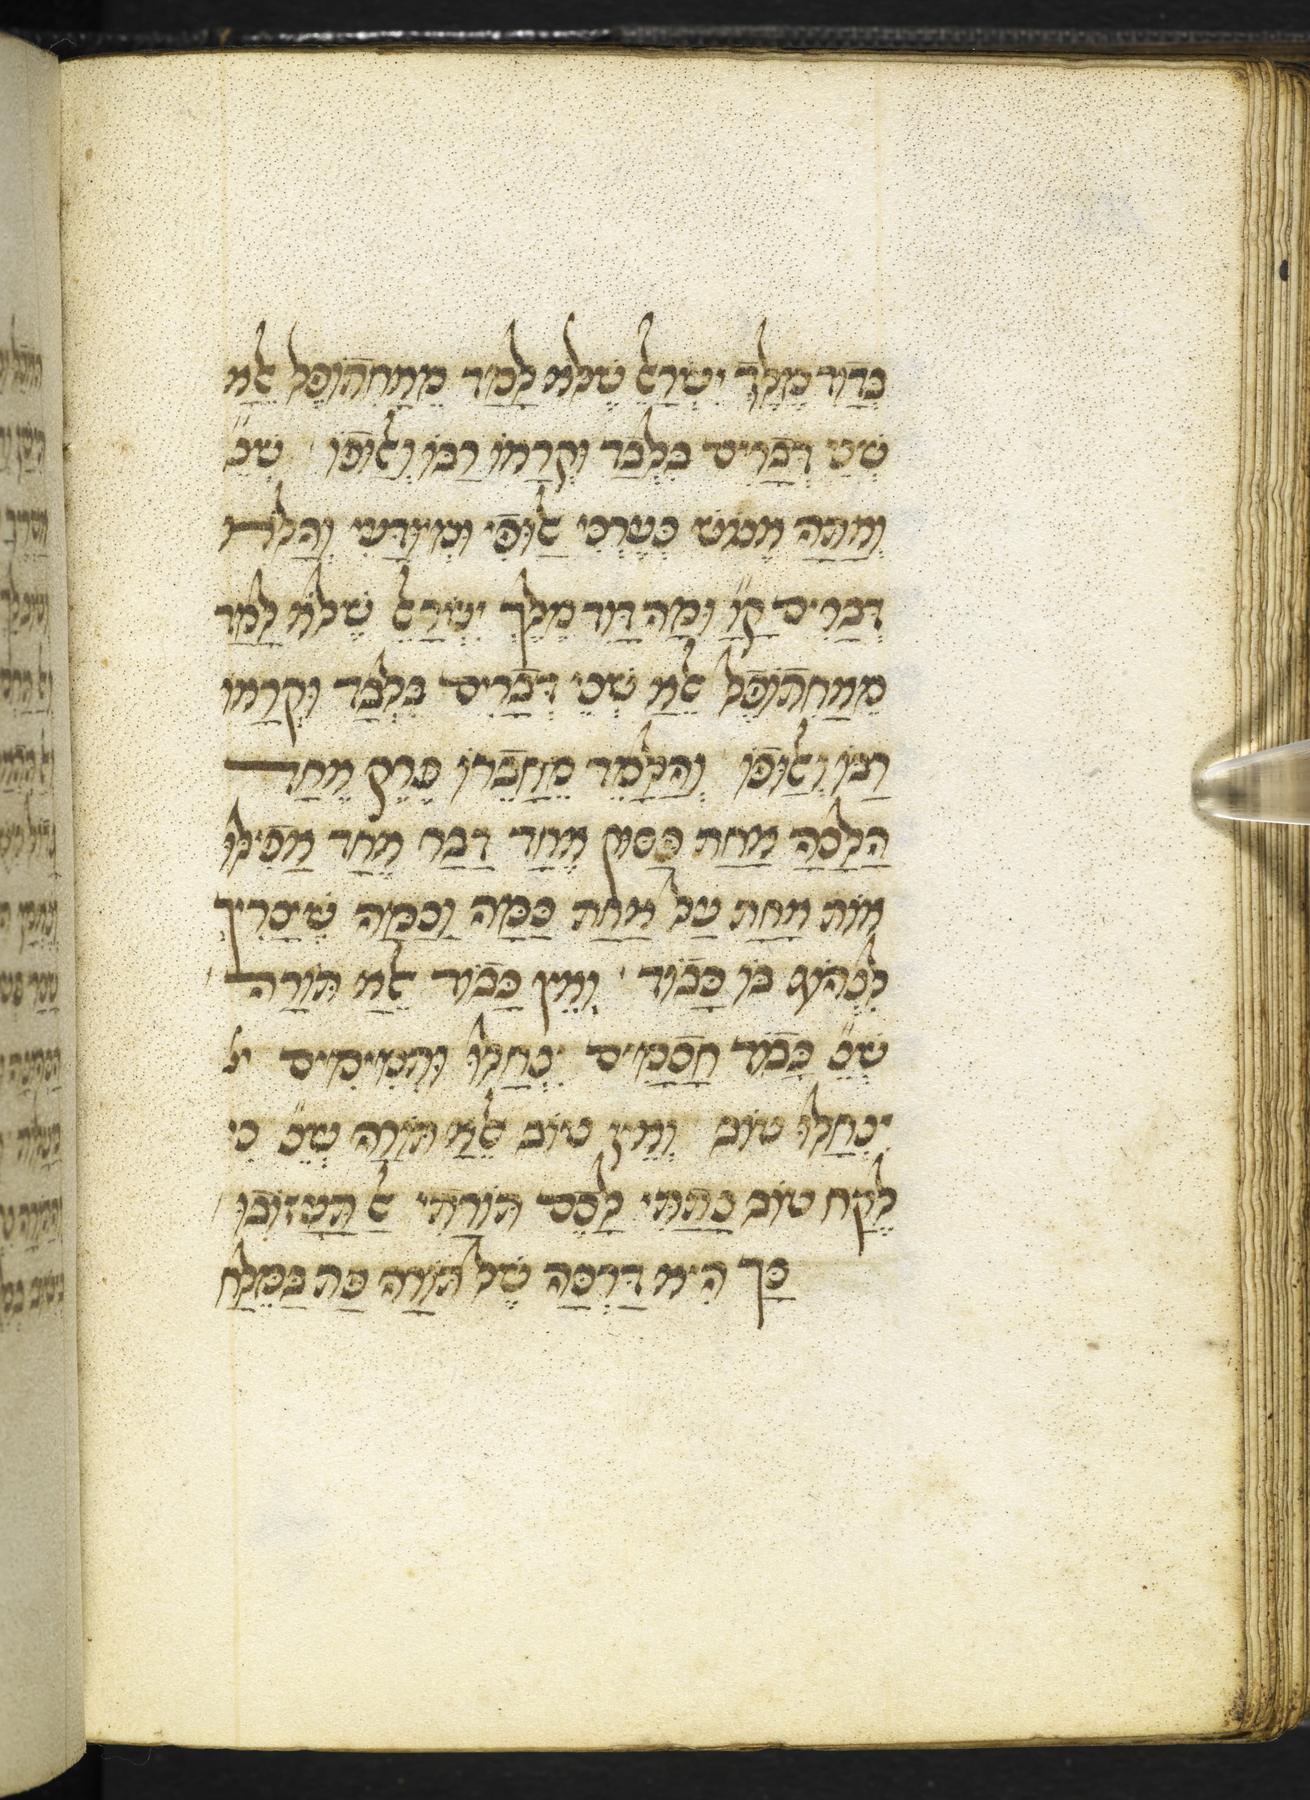 כדוד מלך ישראל שלא למד מאחתופל אלא
שני דברים בלבד וקראו רבו ואלופו שנ׳
ואתה אנוש כערכי אלופי ומיודעי והלא
דברים ק״ו ומה דוד מלך ישראל שלא למד
מאחתופל אלא שני דברים בלבד וקראו
רבו ואלופו והלמד מחברו פרק אחד
הלכה אחת פסוק אחד דבר אחד אפילו
אות אחת על אחת כמה וכמה שיצריך
לנהוג בו כבוד ואין כבוד אלא תורה
שנ׳ כבוד חכמים ינחלו ותמימים ינ
ינחלו טוב ואין טוב אלא תורה שנ׳ כי
לקח טוב נתתי לכם תורתי אל תעזובו
כך היא דרכה של תורה פת במלח